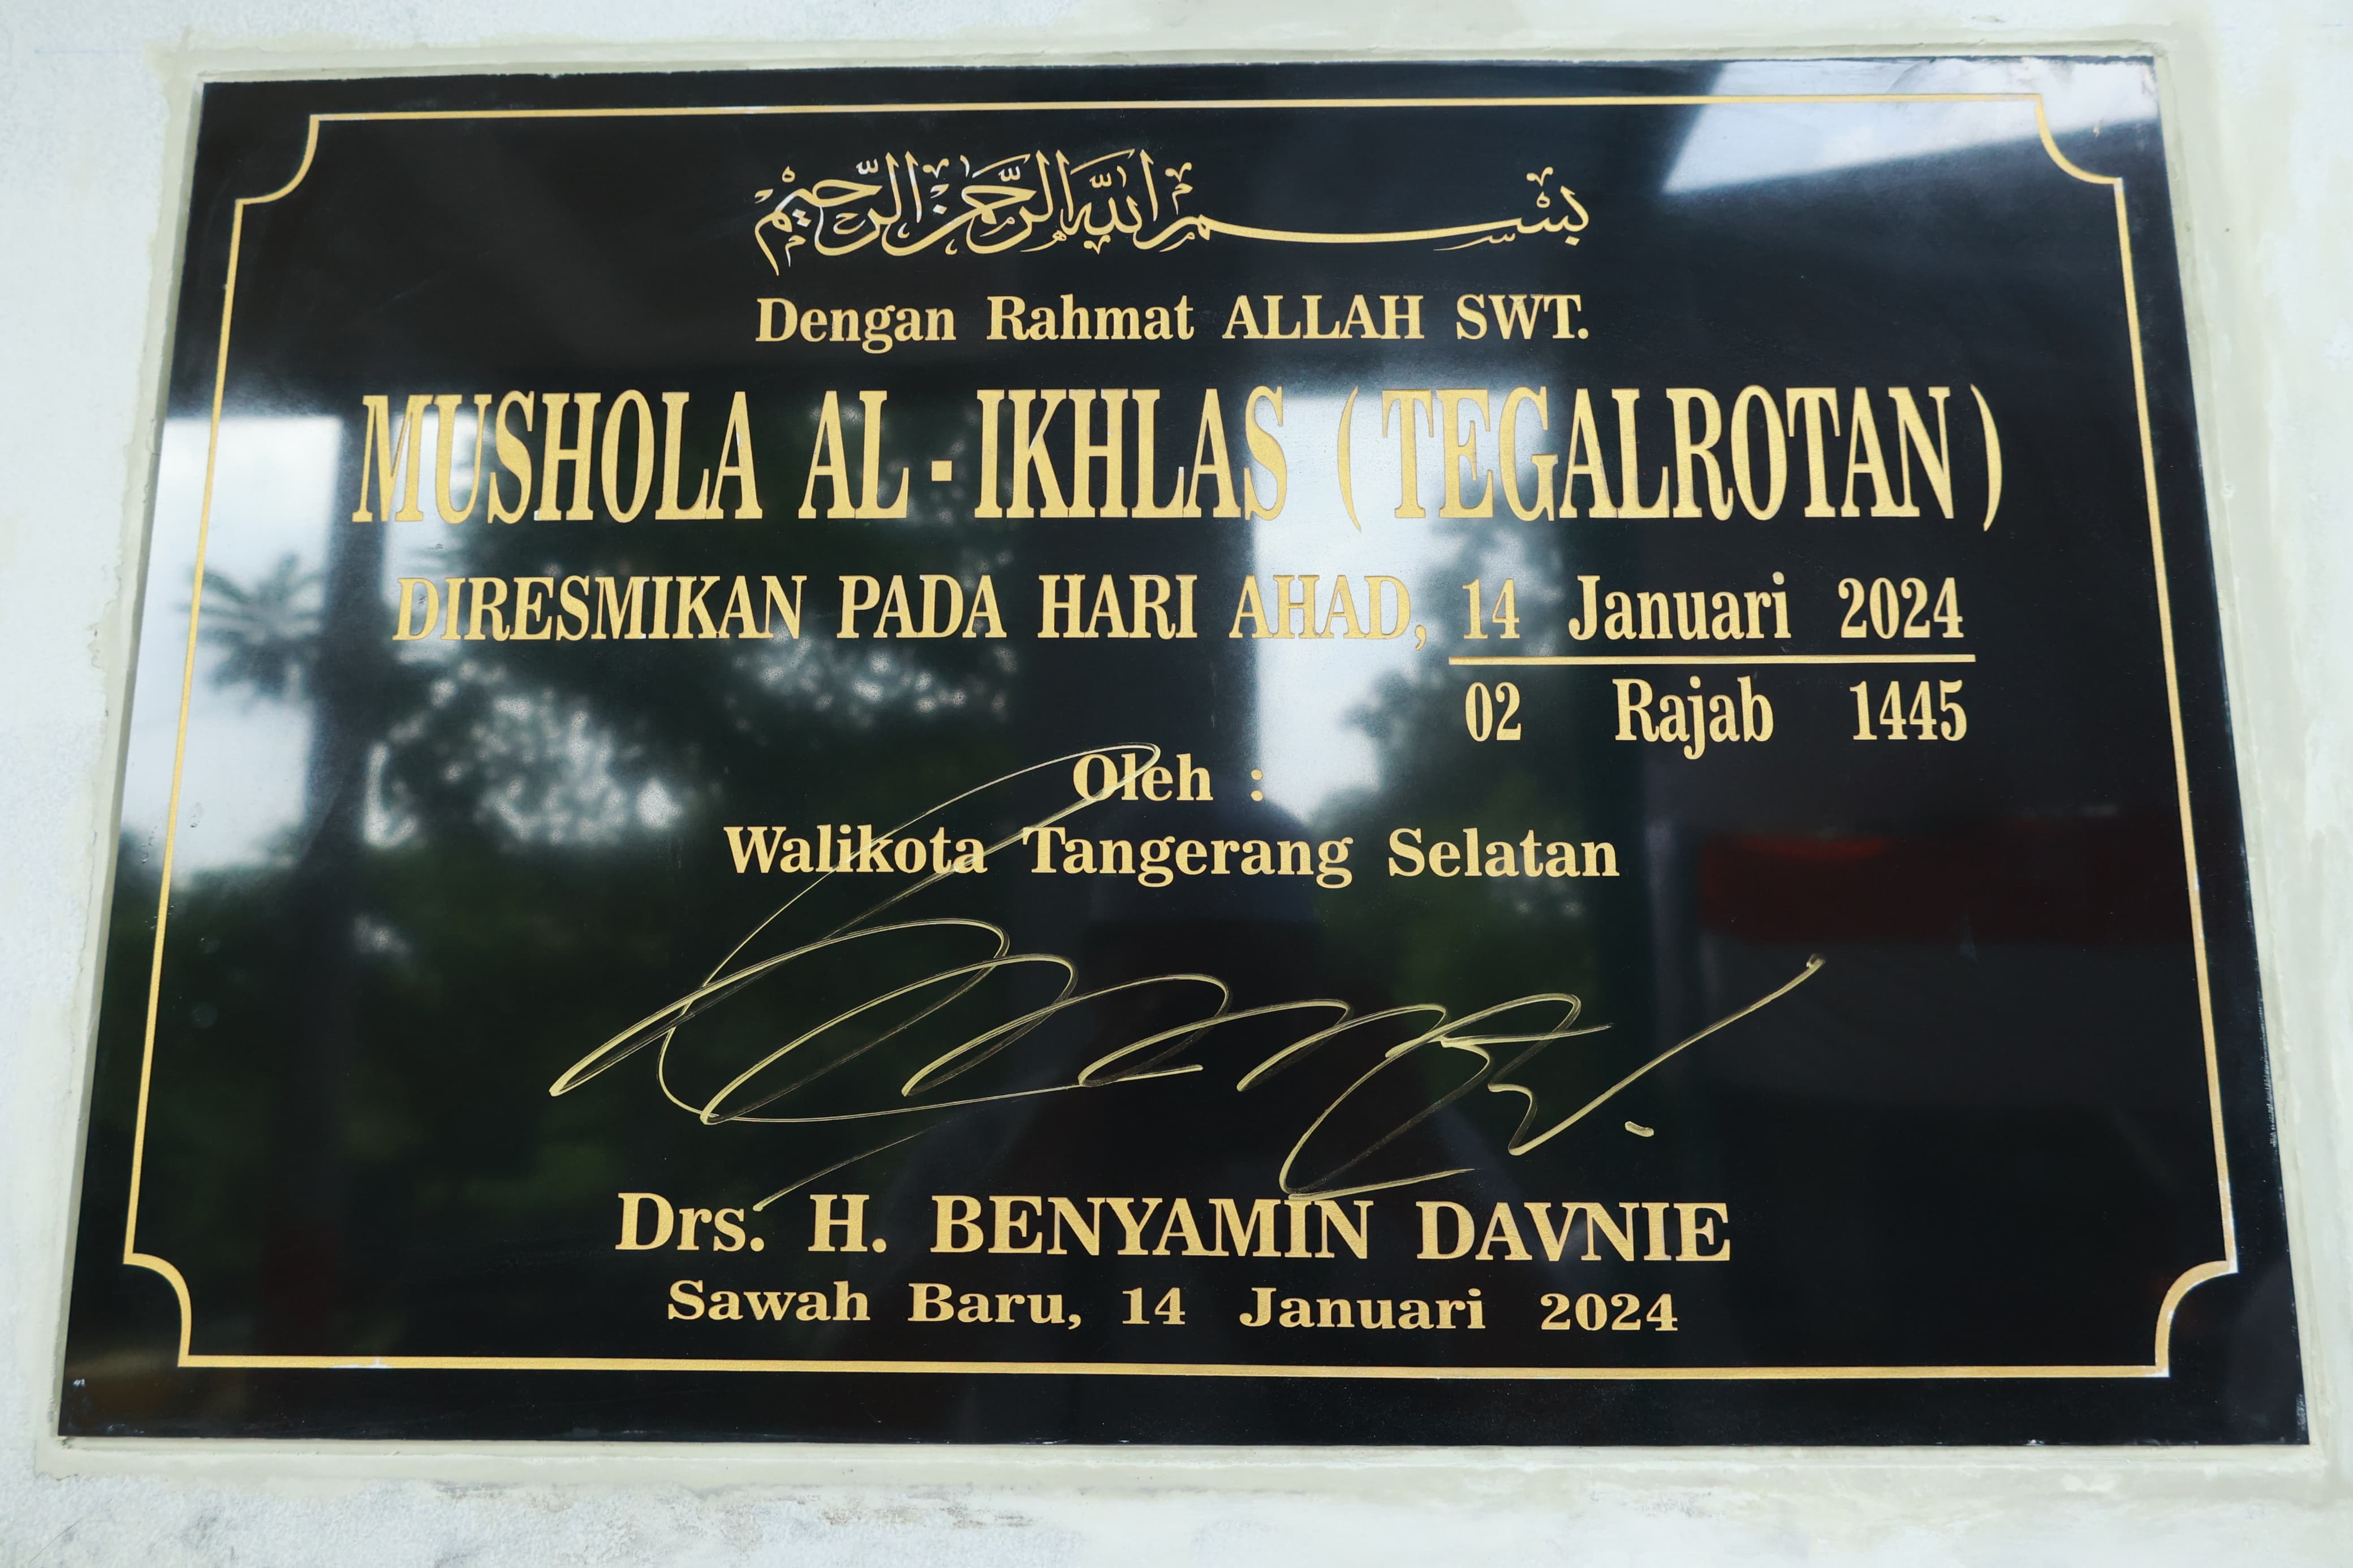 بسم الله الرحمن الرحيم
Dengan Rahmat ALLAH SWT.
MUSHOLA AL - IKHLAS ( TEGALROTAN )
DIRESMIKAN PADA HARI AHAD, 14 Januari 2024
02 Rajab 1445
Oleh :
Walikota Tangerang Selatan
Drs. H. BENYAMIN DAVNIE
Sawah Baru, 14 Januari 2024